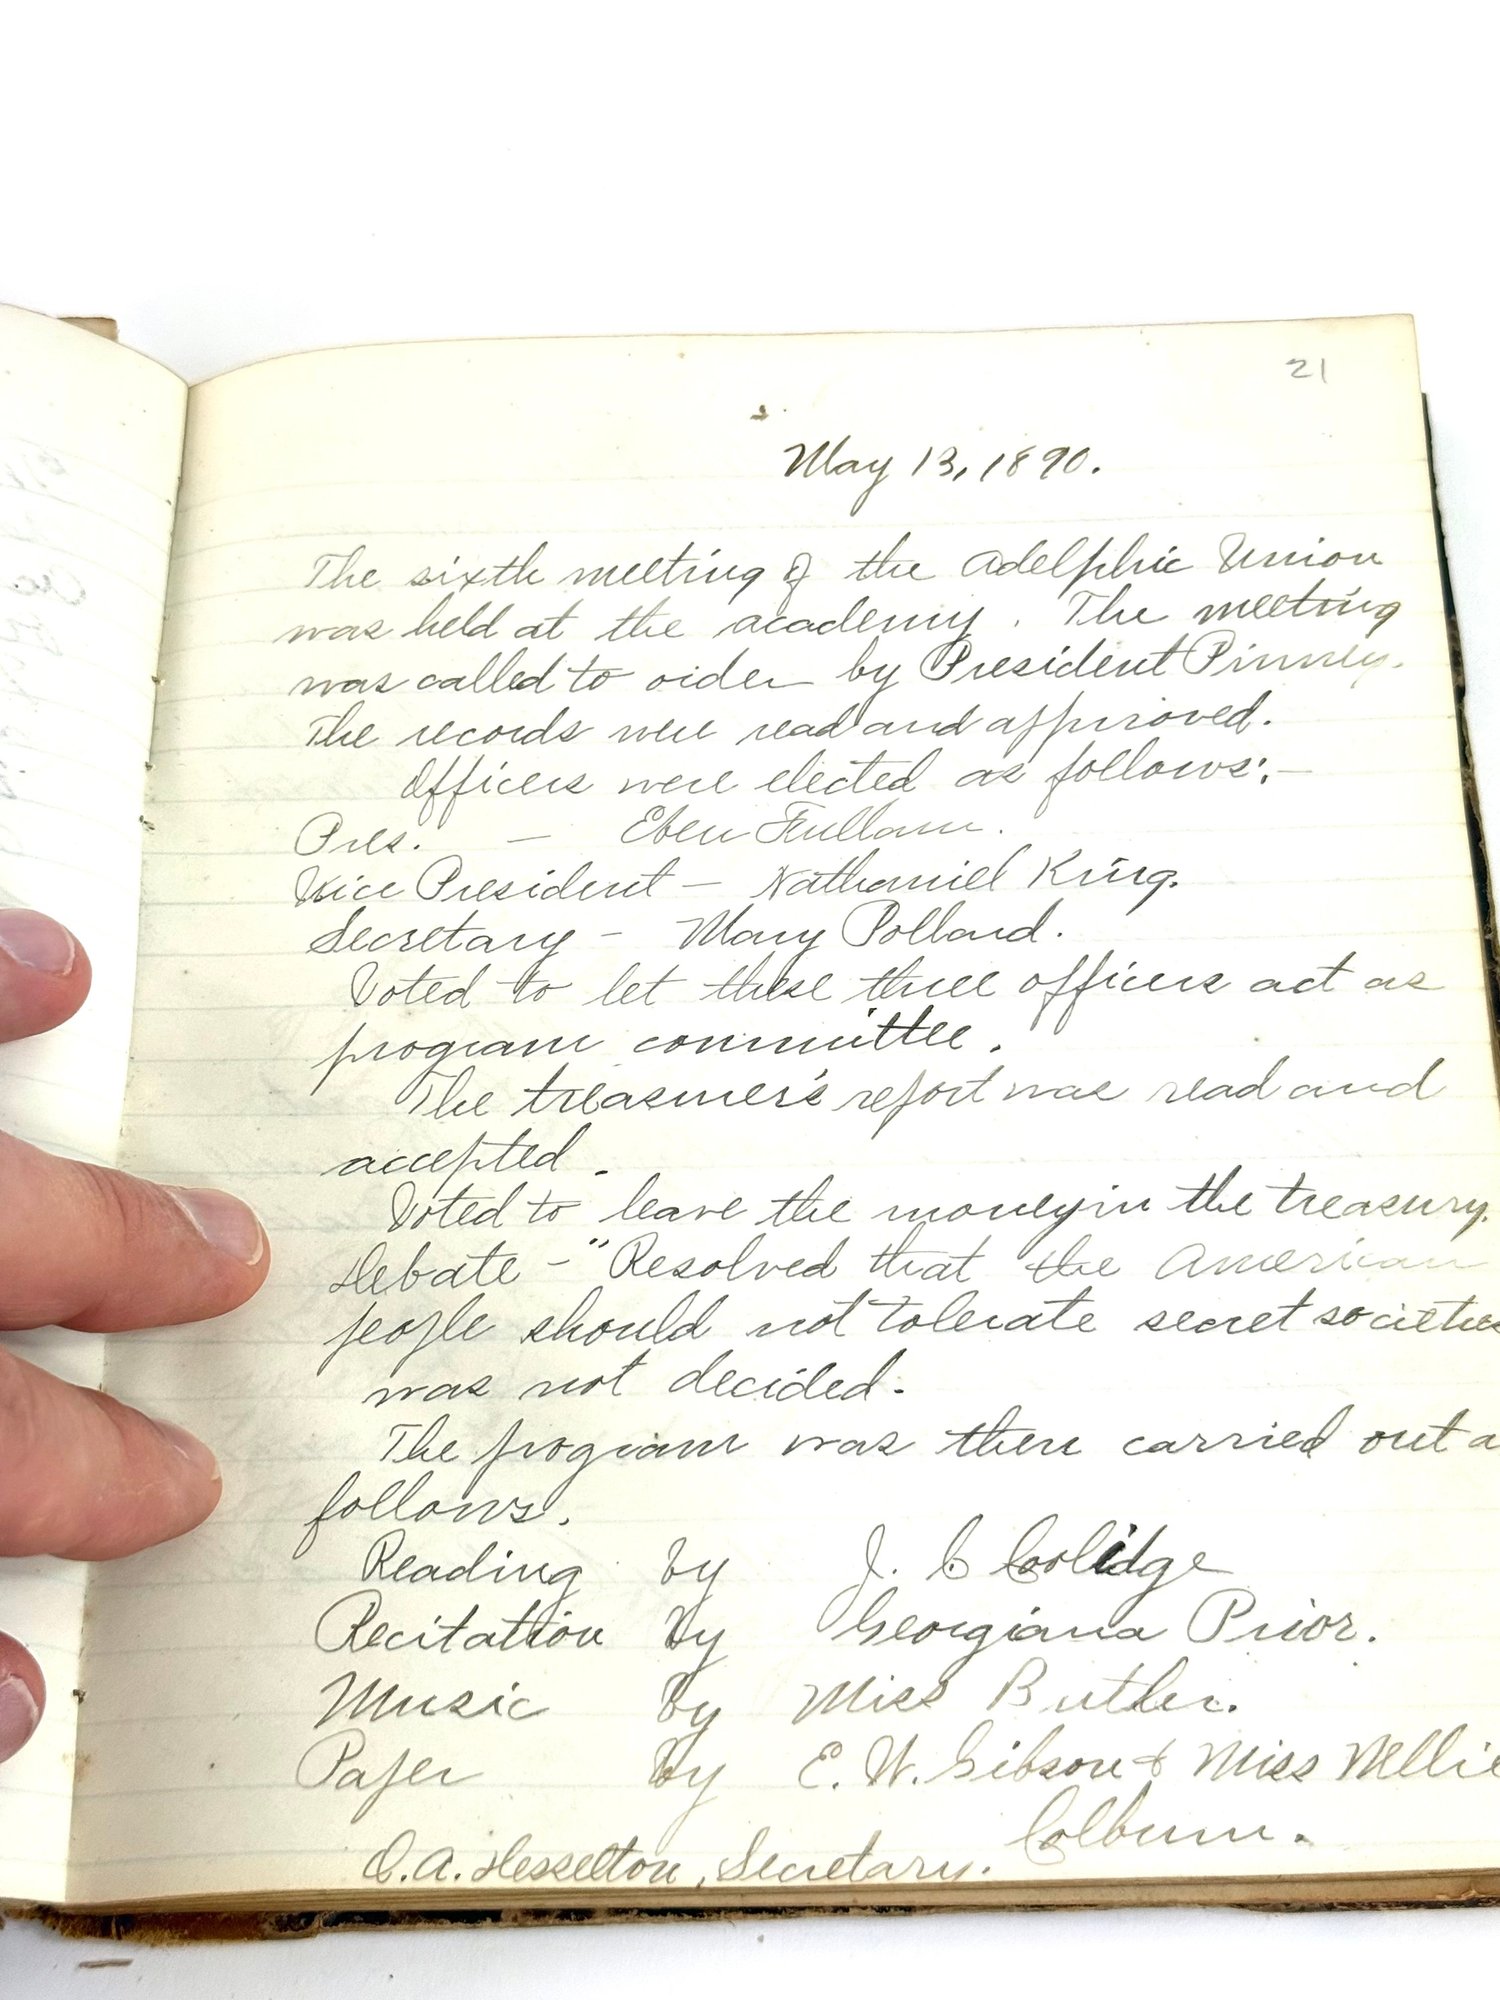 21
May 13, 1890.
The sixth meeting of the Adelphic Union
was held at the academy. The meeting
was called to order by President Pinney.
The records were read and approved.
Officers were elected as follows:—
Pres. — Eben Fullam.
Vice President — Nathaniel King.
Secretary — Mary Pollard.
Voted to let these three officers act as
program committee.
The treasurer's report was read and
accepted.
Voted to leave the money in the treasury.
Debate — "Resolved that the American
people should not tolerate secret societies
was not decided.
The program was then carried out a
follows.
Reading by J. C Coolidge
Recitation by Georgiana Prior.
Music by Miss Butler.
Paper by E. W. Gibson & Miss Nellie
Colburn.
O. A. Hesselton, Secretary.